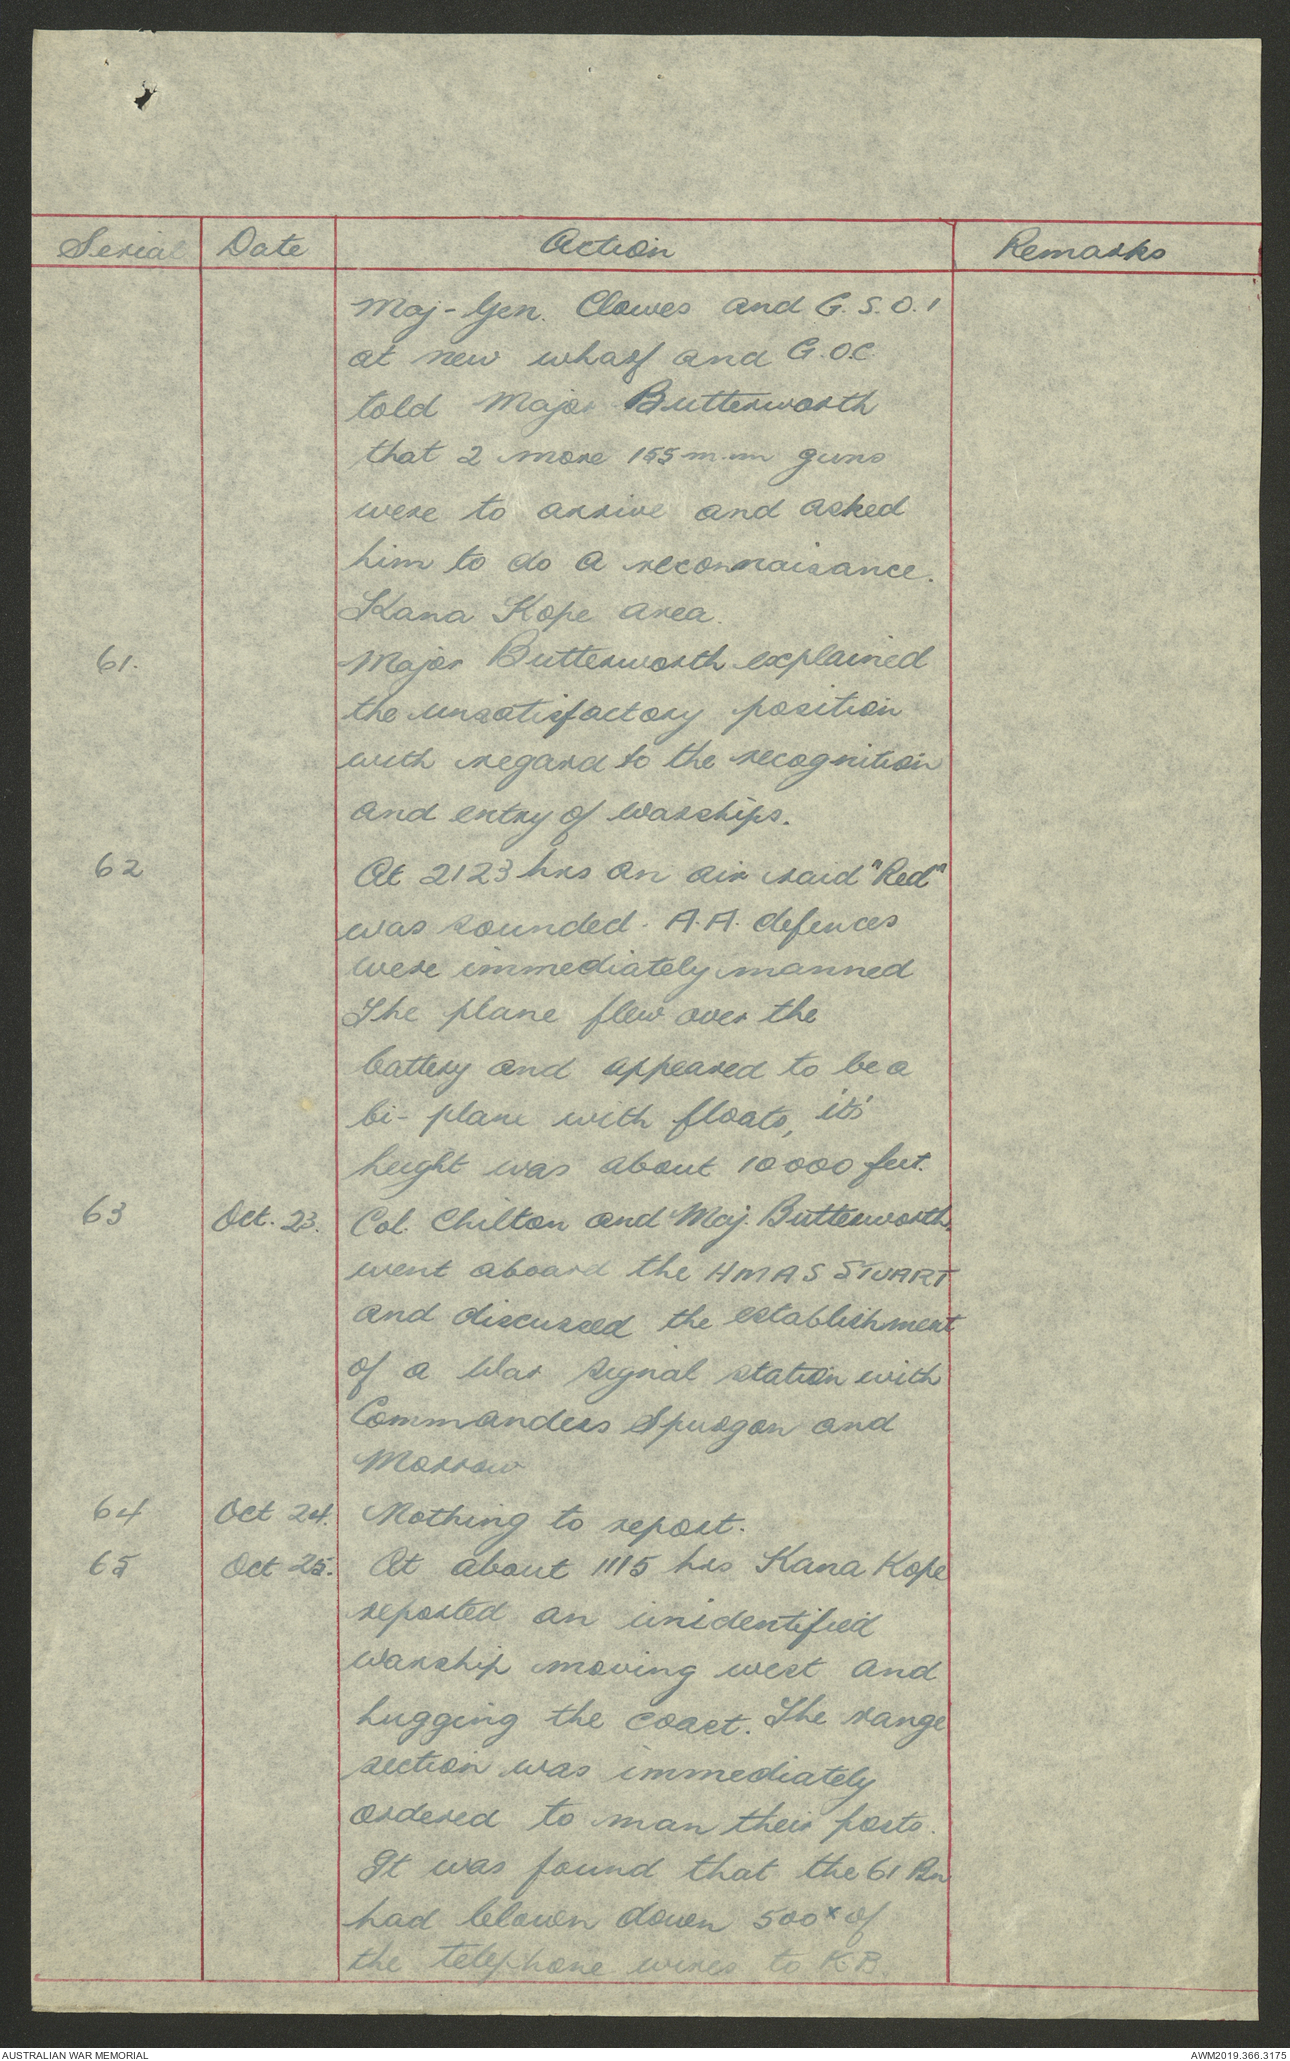 Serial Date Action Remarks
Maj-Gen. Clowes and G.S.O.1
at new wharf and G.O.C.
told Major Butterworth
that 2 more 155 m.m guns
were to arrive and asked
him to do a reconnaisance.
Kana Kope area.
61. Major Butterworth explained
the unsatisfactory position
with regard to the recognition
and entry of warships.
62 At 2123 hrs an air raid "Red"
was sounded. A.A. defences
were immediately manned
The plane flew over the
battery and appeared to be a
bi-plane with floats, it's
height was about 10000 feet.
63 Oct. 23. Col. Chilton and Maj. Butterworth
went aboard the HMAS STUART
and discussed the establishment
of a War signal station with
Commanders Spurgon and
Morrow
64 Oct 24. Nothing to report.
65 Oct 25. At about 1115 hrs Kana Kope
reported an unidentified
warship moving west and
hugging the coast. The range
section was immediately
ordered to man their posts.
It was found that the 61 Bn
had blown down 500ˣ of
the telephone wires to K.B.
AUSTRALIAN WAR MEMORIAL AWM2019.366.3175